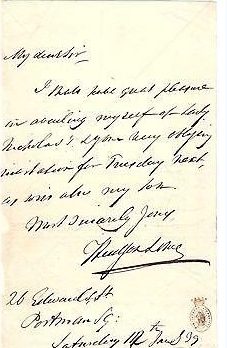 My dear Sir
I shall have great pleasure
in availing myself of Lady
Nicholas's & your very obliging
invitation for Tuesday next
as will also my son
Most Sincerely Yours
26 Edward St
Portman Sq:
Saturday 14th Jan